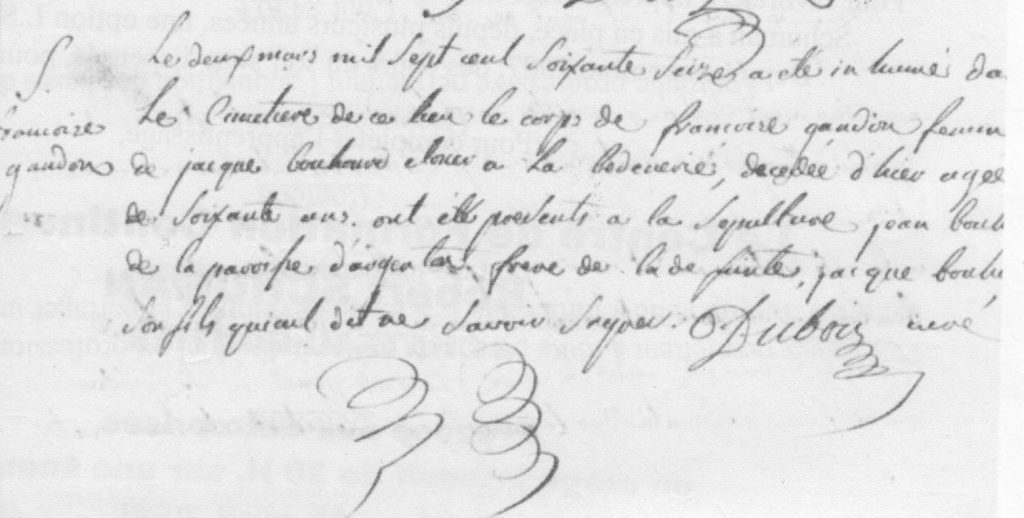 S
francoise
gandon
Le deux mars mil sept cent soixante seize a ete inhumé da
Le Cimetiere de ce lieu le corps de francoise gandon femm
de jacque bouhours closier a La bedenerie, decedée d'hier agee
de soixante ans. ont été presents a la sepulture jean bouh
de la paroisse d'argentar. frere de la de funte, jacque bouhu
son fils qui ont dit ne savoir signer. Dubois curé